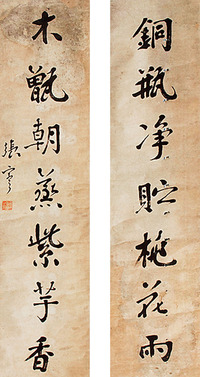 銅瓶净貯桃花雨
木甑朝蒸紫芋香
張謇